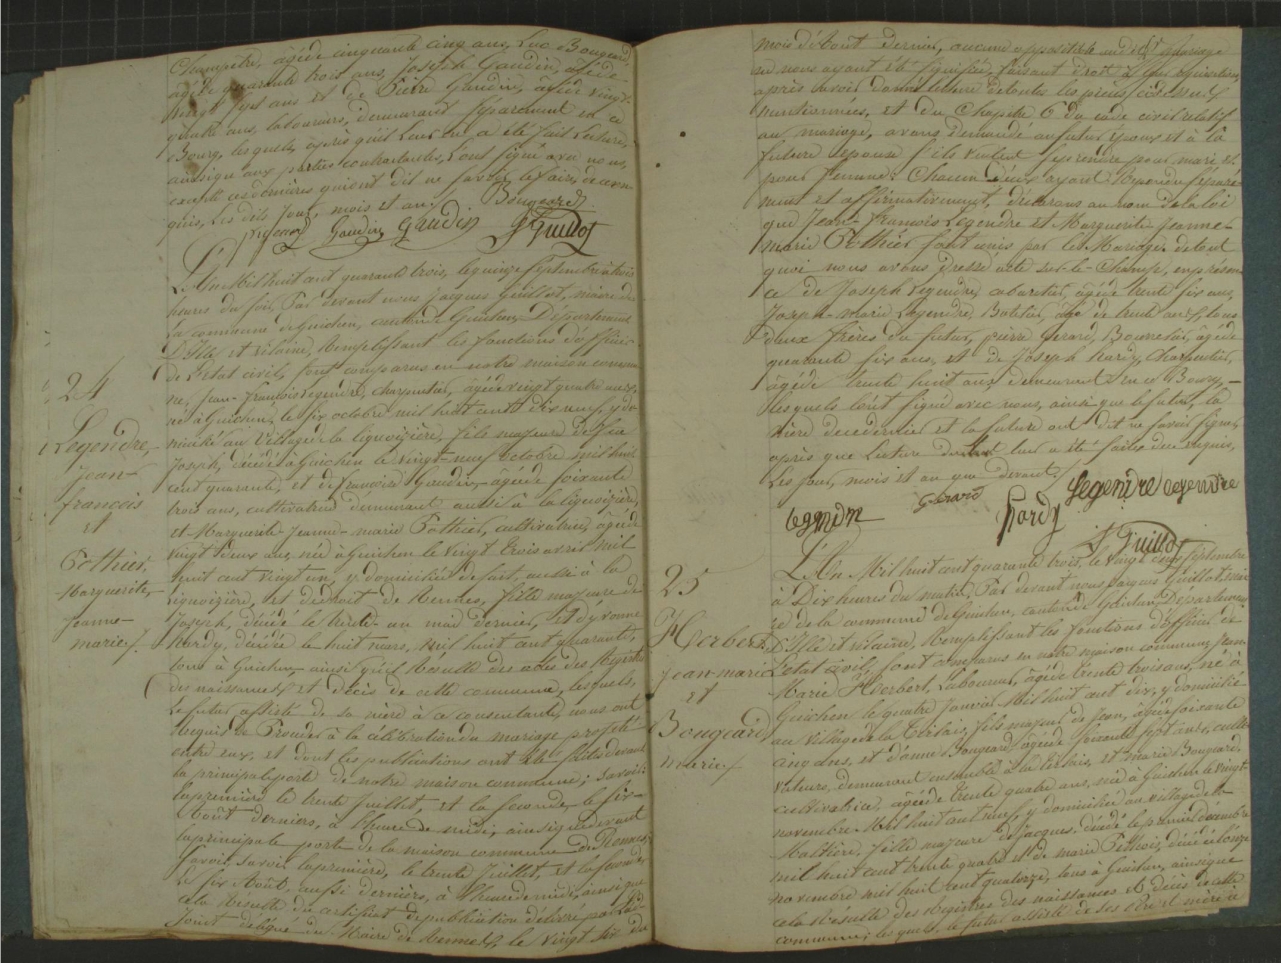 Champêtre, âgé de cinquante cinq ans, Luc Bougeard,
âgé de quarante trois ans, Joseph Gaudin, âgé de
vingt sept ans et de Pierre Gaudin, âgé de vingt-
ans, laboureurs, demeurant séparément en ce
Bourg, lesquels, après qu'il leur en a été fait lecture,
ainsi que aux parties contractantes, l'ont signé avec nous,
excepté ces dernières qui ont dit ne savoir le faire, de ce re-
quis, les dits jour, mois et an. Bougeard
Gaudin Gaudin J Guillot
L'An Mil huit cent quarante trois, le quinze septembre à trois
heures du soir, Par devant nous Jacques Guillot, maire de
la commune de Guichen, canton de Guichen, Département
D'Ille et vilaine, Remplissant les fonctions d'officier
de l'état civil, sont comparus en notre maison commu-
ne, jean-françois Legendre, charpentier, âgé de vingt quatre ans,
né à Guichen, le six octobre mil huit cent dix neuf, y do-
micilié au village de la ligouzière, fils majeur de feu
Joseph, décédé à Guichen le vingt-neuf octobre mil huit
cent quarante, et de françoise Gaudin, âgée soixante
trois ans, cultivatrice demeurant aussi à la ligouzière,
et Marguerite-Jeanne-marie Pothier, cultivatrice, âgée de
vingt deux ans, née à Guichen le vingt trois avril mil
huit cent vingt un, y domiciliée de fait, aussi à la
ligouzière, et de droit de Rennes, fille majeure de
joseph, décédé le trente un mai dernier, et d'yvonne
Hardy, décédée le huit mars, mil huit cent quarante,
tous à Guichen, ainsi qu'il Résulte des actes des Registres
des naissances et décès de cette commune, lesquels,
le futur assisté de sa mère à ce consentante, nous ont
Requis de Procéder à la célébration du mariage projeté
entre eux, et dont les publications ont été faites devant
la principale porte de notre maison commune; savoir:
la première le trente Juillet, et la seconde, le six
Août derniers, à l'heure de midi, ainsi que devant
la principale porte de la maison commune de Rennes,
savoir la première, le trente Juillet, et la seconde
le six Août, aussi derniers, à l'heure de midi, ainsi que
cela Résulte du certificat de publication délivré par
délégué du Maire de Rennes, le vingt six du
24
Legendre,
jean-
françois
et
Pothier,
Marguerite,
jeanne-
marie
mois d'Août dernier, aucune opposition au dit mariage
ne nous ayant été signifiée, faisant droit à leur réquisition,
après avoir donné lecture de toutes les pièces ci dessus
mentionnées, et du Chapitre 6 du code civil relatif
au mariage, avons demandé au futur époux et à la
future épouse s'ils veulent se prendre pour mari et
pour femme: Chacun d'eux ayant Répondu séparé-
ment et affirmativement, déclarons au nom de la loi
que Jean-François Legendre et Marguerite-Jeanne-
marie Pothier sont unis par le Mariage. de tout
quoi nous avons dressé acte sur-le-Champ, en présen-
ce de Joseph Legendre, cabaretier, âgé de trente six ans,
Joseph-marie Legendre, âgé de trente ans, tous
deux frères du futur, pierre Gerard, Bourrelier, âgé de
quarante six ans, et de Joseph Hardy, Charpentier,
âgé de trente huit ans, demeurant en ce Bourg,
lesquels l'ont signé avec nous, ainsi que le futur, la
mère de ce dernier et la future ont dit ne savoir signer,
après que Lecture du tout leur a été faite, de ce requis,
les jour, mois et an que devant.
Legendre Gerard Hardy Legendre Legendre
J Guillot
L'An Mil huit cent quarante trois, le vingt septembre
à Dix heures du matin, Par devant nous jacques Guillot, mai-
re de la commune de Guichen, canton de Guichen, Département
D'Ille et vilaine, Remplissant les fonctions d'officier de
l'état civil, sont comparus en notre maison commune, jean
Marie Herbert, Laboureur, âgé de trente trois ans, né à
Guichen le quatre Janvier Mil huit cent dix, y domicilié
au village de la Tertrais, fils majeur de Jean, âgé de soixante
cinq ans, et d'anne Bougeard, âgée de soixante sept ans, culti-
vateurs, demeurant ensemble à la Tertrais, et marie Bougeard,
cultivatrice, âgée de trente quatre ans, née à Guichen le vingt-
novembre Mil huit cent neuf, y domiciliée au village de la
fille majeure de jacques, décédé le premier décembre
mil huit cent trente quatre et de marie décédée le onze
novembre mil huit cent quatorze, tous à Guichen, ainsi que
cela Résulte des Registres des naissances et décès de cette
commune, lesquels, le futur assisté de ses Père et mère à
25
Herbert,
jean-marie
et
Bougeard
marie